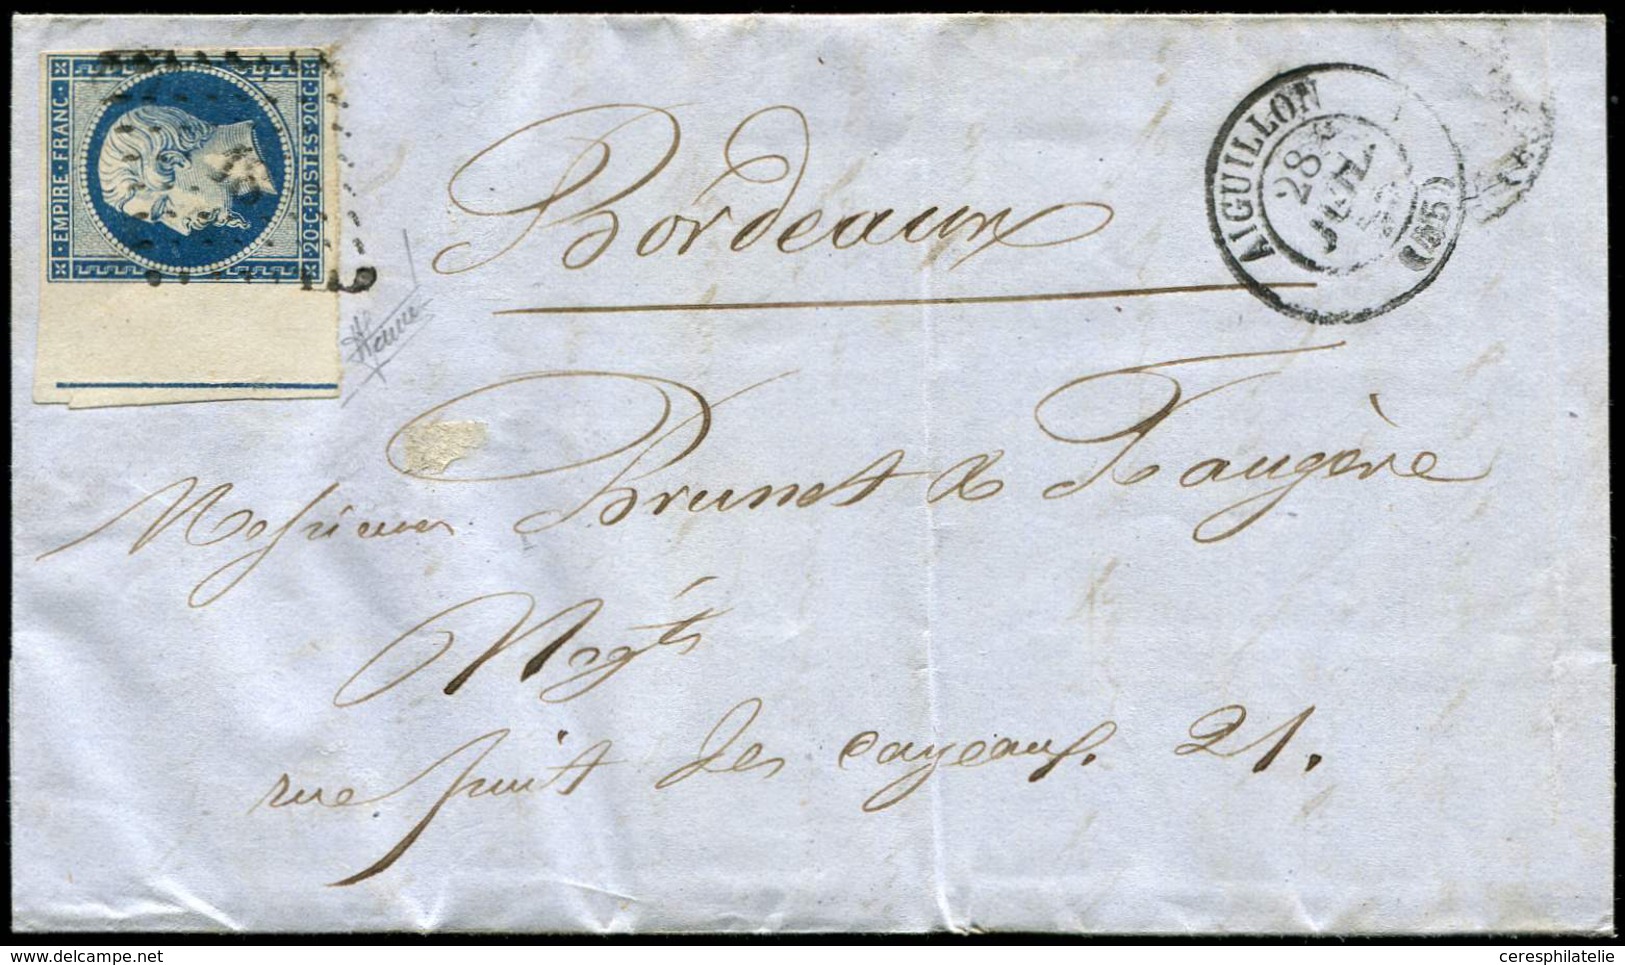 EMPIRE · FRANC ·
20 · C · POSTES · 20 · C ·
AIGUILLON
28
JUIL.
Bordeaux
Messieurs Brunet & Faugère
Négts
rue Puits des cazeaux. 21.
www.delcampe.net
ceresphilatelie